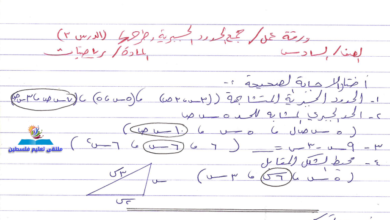 ورقة عمل / جمع الحدود الجبرية وطرحها (الدرس ٢)
الصف / السادس المادة / رياضيات
أختار الإجابة الصحيحة :-
١- الحدود الجبرية المتشابهة ((٣س، ٢ص) ، (٥س، ٥) ، (٧س ص، ٣س ص))
٢- الحد الجبري المشابه للحد ٥س ص
( ٥س ص ل ، ٥س ، ١٠س ص )
٣- ٩س - ٣س = ( ٦ ، ٦س ، ٦س٢ )
٤- محيط الشكل المقابل
( ٥س ، ٦س ، ٣س )
٣س
س
٢س
ملتقى تعليم فلسطين